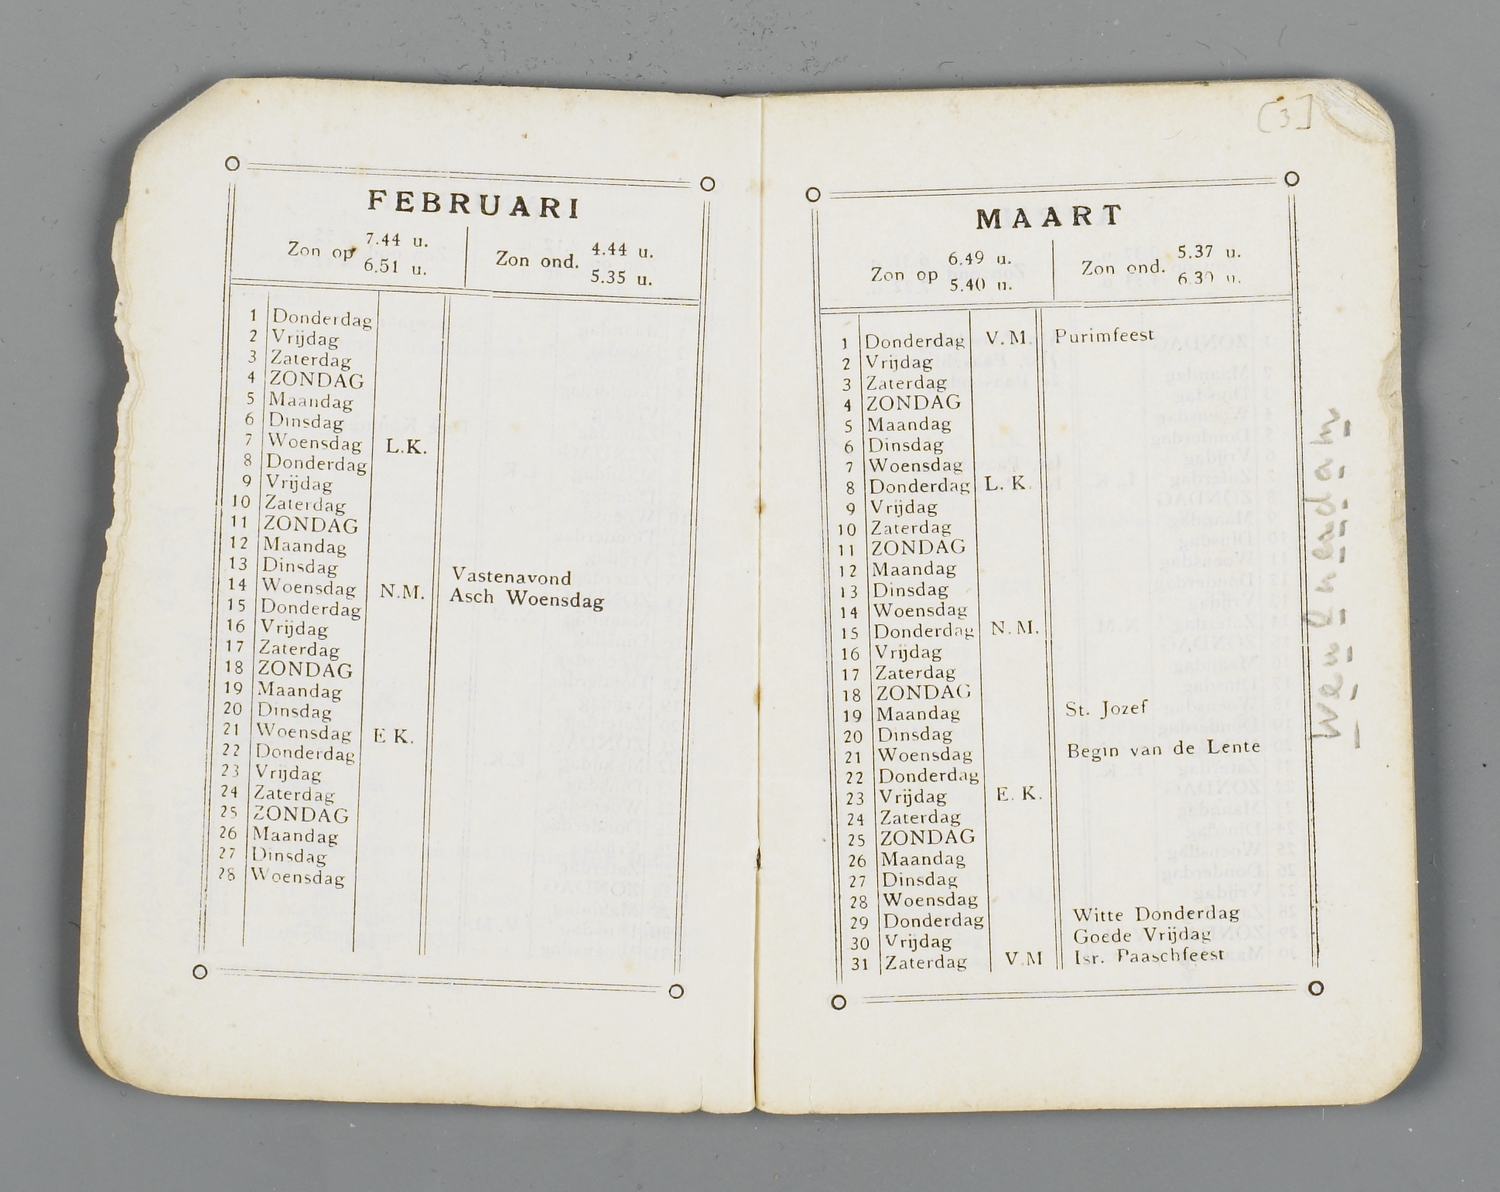 FEBRUARI
Zon op 7.44 u. 6.51 u. Zon ond. 4.44 u. 5.35 u.
1 Donderdag
2 Vrijdag
3 Zaterdag
4 ZONDAG
5 Maandag
6 Dinsdag
7 Woensdag L.K.
8 Donderdag
9 Vrijdag
10 Zaterdag
11 ZONDAG
12 Maandag
13 Dinsdag Vastenavond
14 Woensdag N.M. Asch Woensdag
15 Donderdag
16 Vrijdag
17 Zaterdag
18 ZONDAG
19 Maandag
20 Dinsdag
21 Woensdag E K.
22 Donderdag
23 Vrijdag
24 Zaterdag
25 ZONDAG
26 Maandag
27 Dinsdag
28 Woensdag
[3]
MAART
Zon op 6.49 u. 5.40 u. Zon ond. 5.37 u. 6.30 u.
1 Donderdag V.M. Purimfeest
2 Vrijdag
3 Zaterdag
4 ZONDAG
5 Maandag
6 Dinsdag
7 Woensdag
8 Donderdag L. K.
9 Vrijdag
10 Zaterdag
11 ZONDAG
12 Maandag
13 Dinsdag
14 Woensdag
15 Donderdag N.M.
16 Vrijdag
17 Zaterdag
18 ZONDAG
19 Maandag St. Jozef
20 Dinsdag
21 Woensdag Begin van de Lente
22 Donderdag
23 Vrijdag E. K.
24 Zaterdag
25 ZONDAG
26 Maandag
27 Dinsdag
28 Woensdag
29 Donderdag Witte Donderdag
30 Vrijdag Goede Vrijdag
31 Zaterdag V.M Isr. Paaschfeest